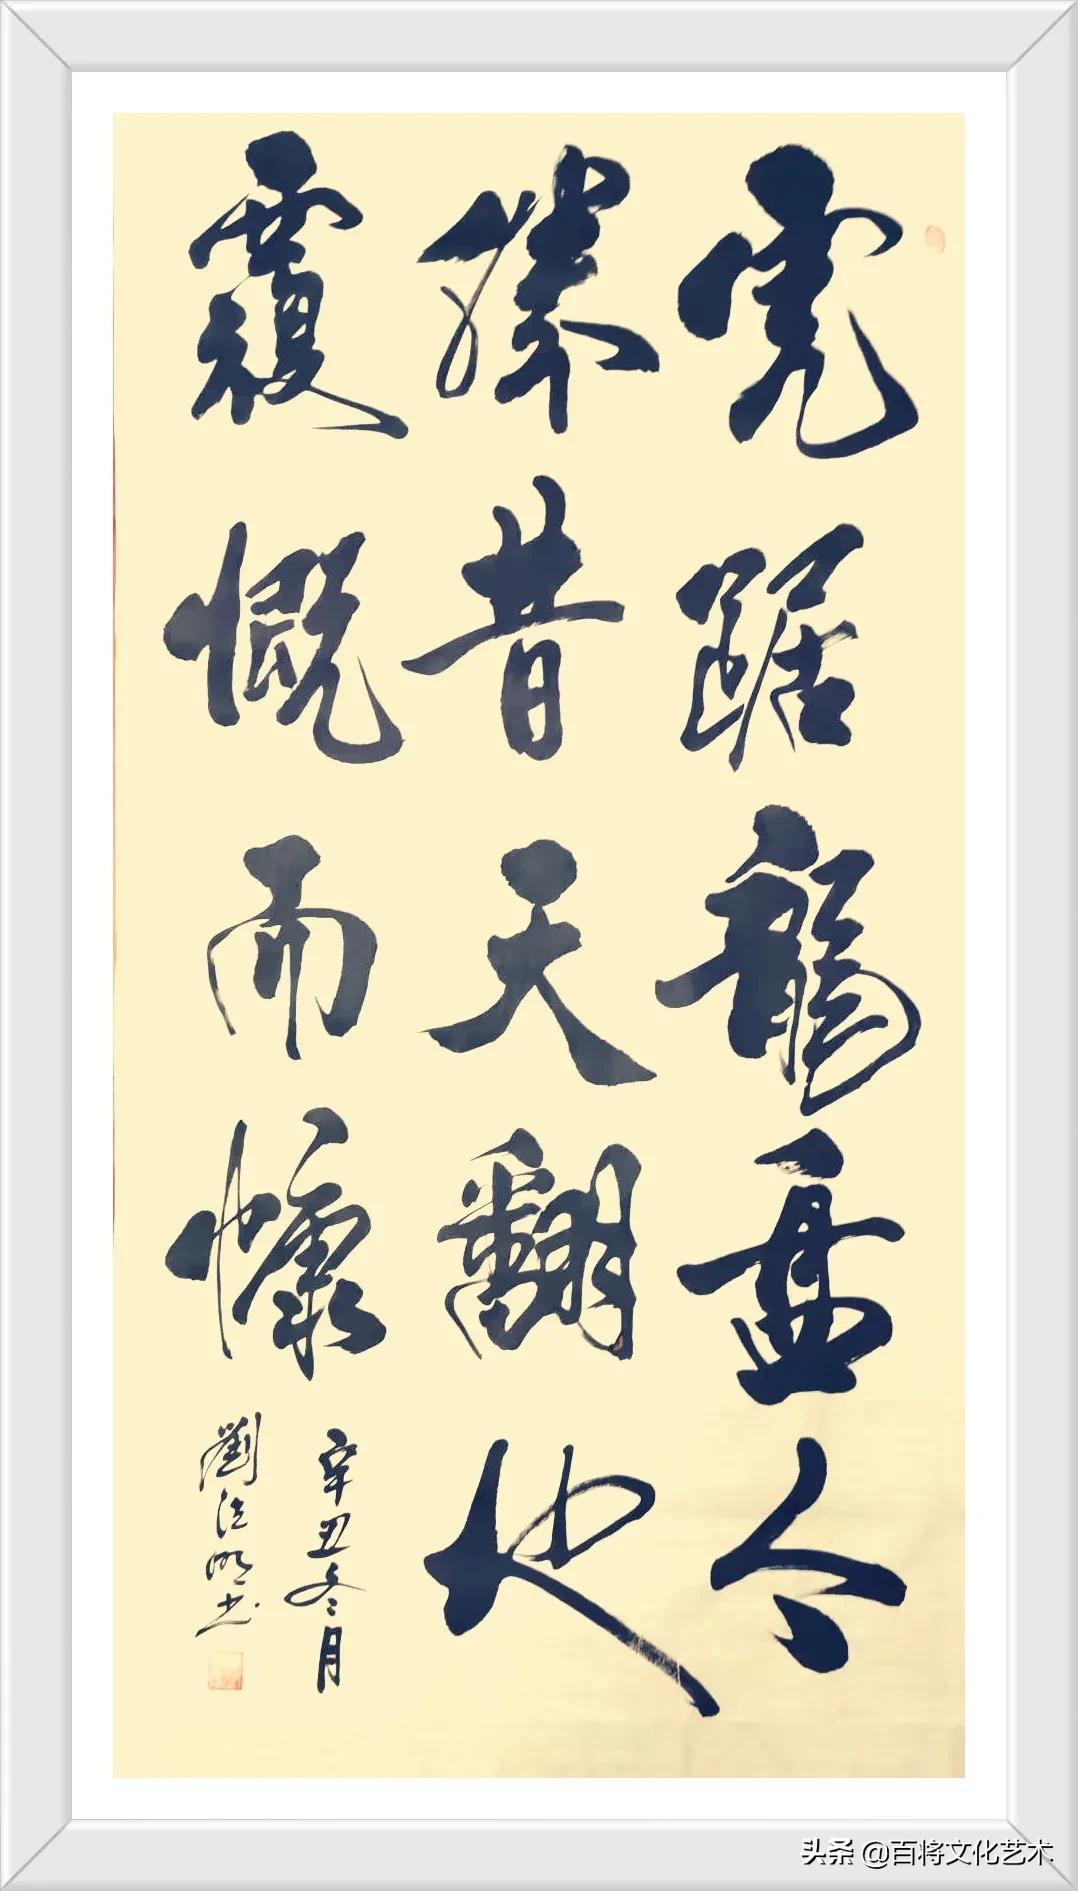 虎踞龍盘今
勝昔天翻地
覆慨而慷
辛丑冬月
劉法明书
头条 @百将文化艺术